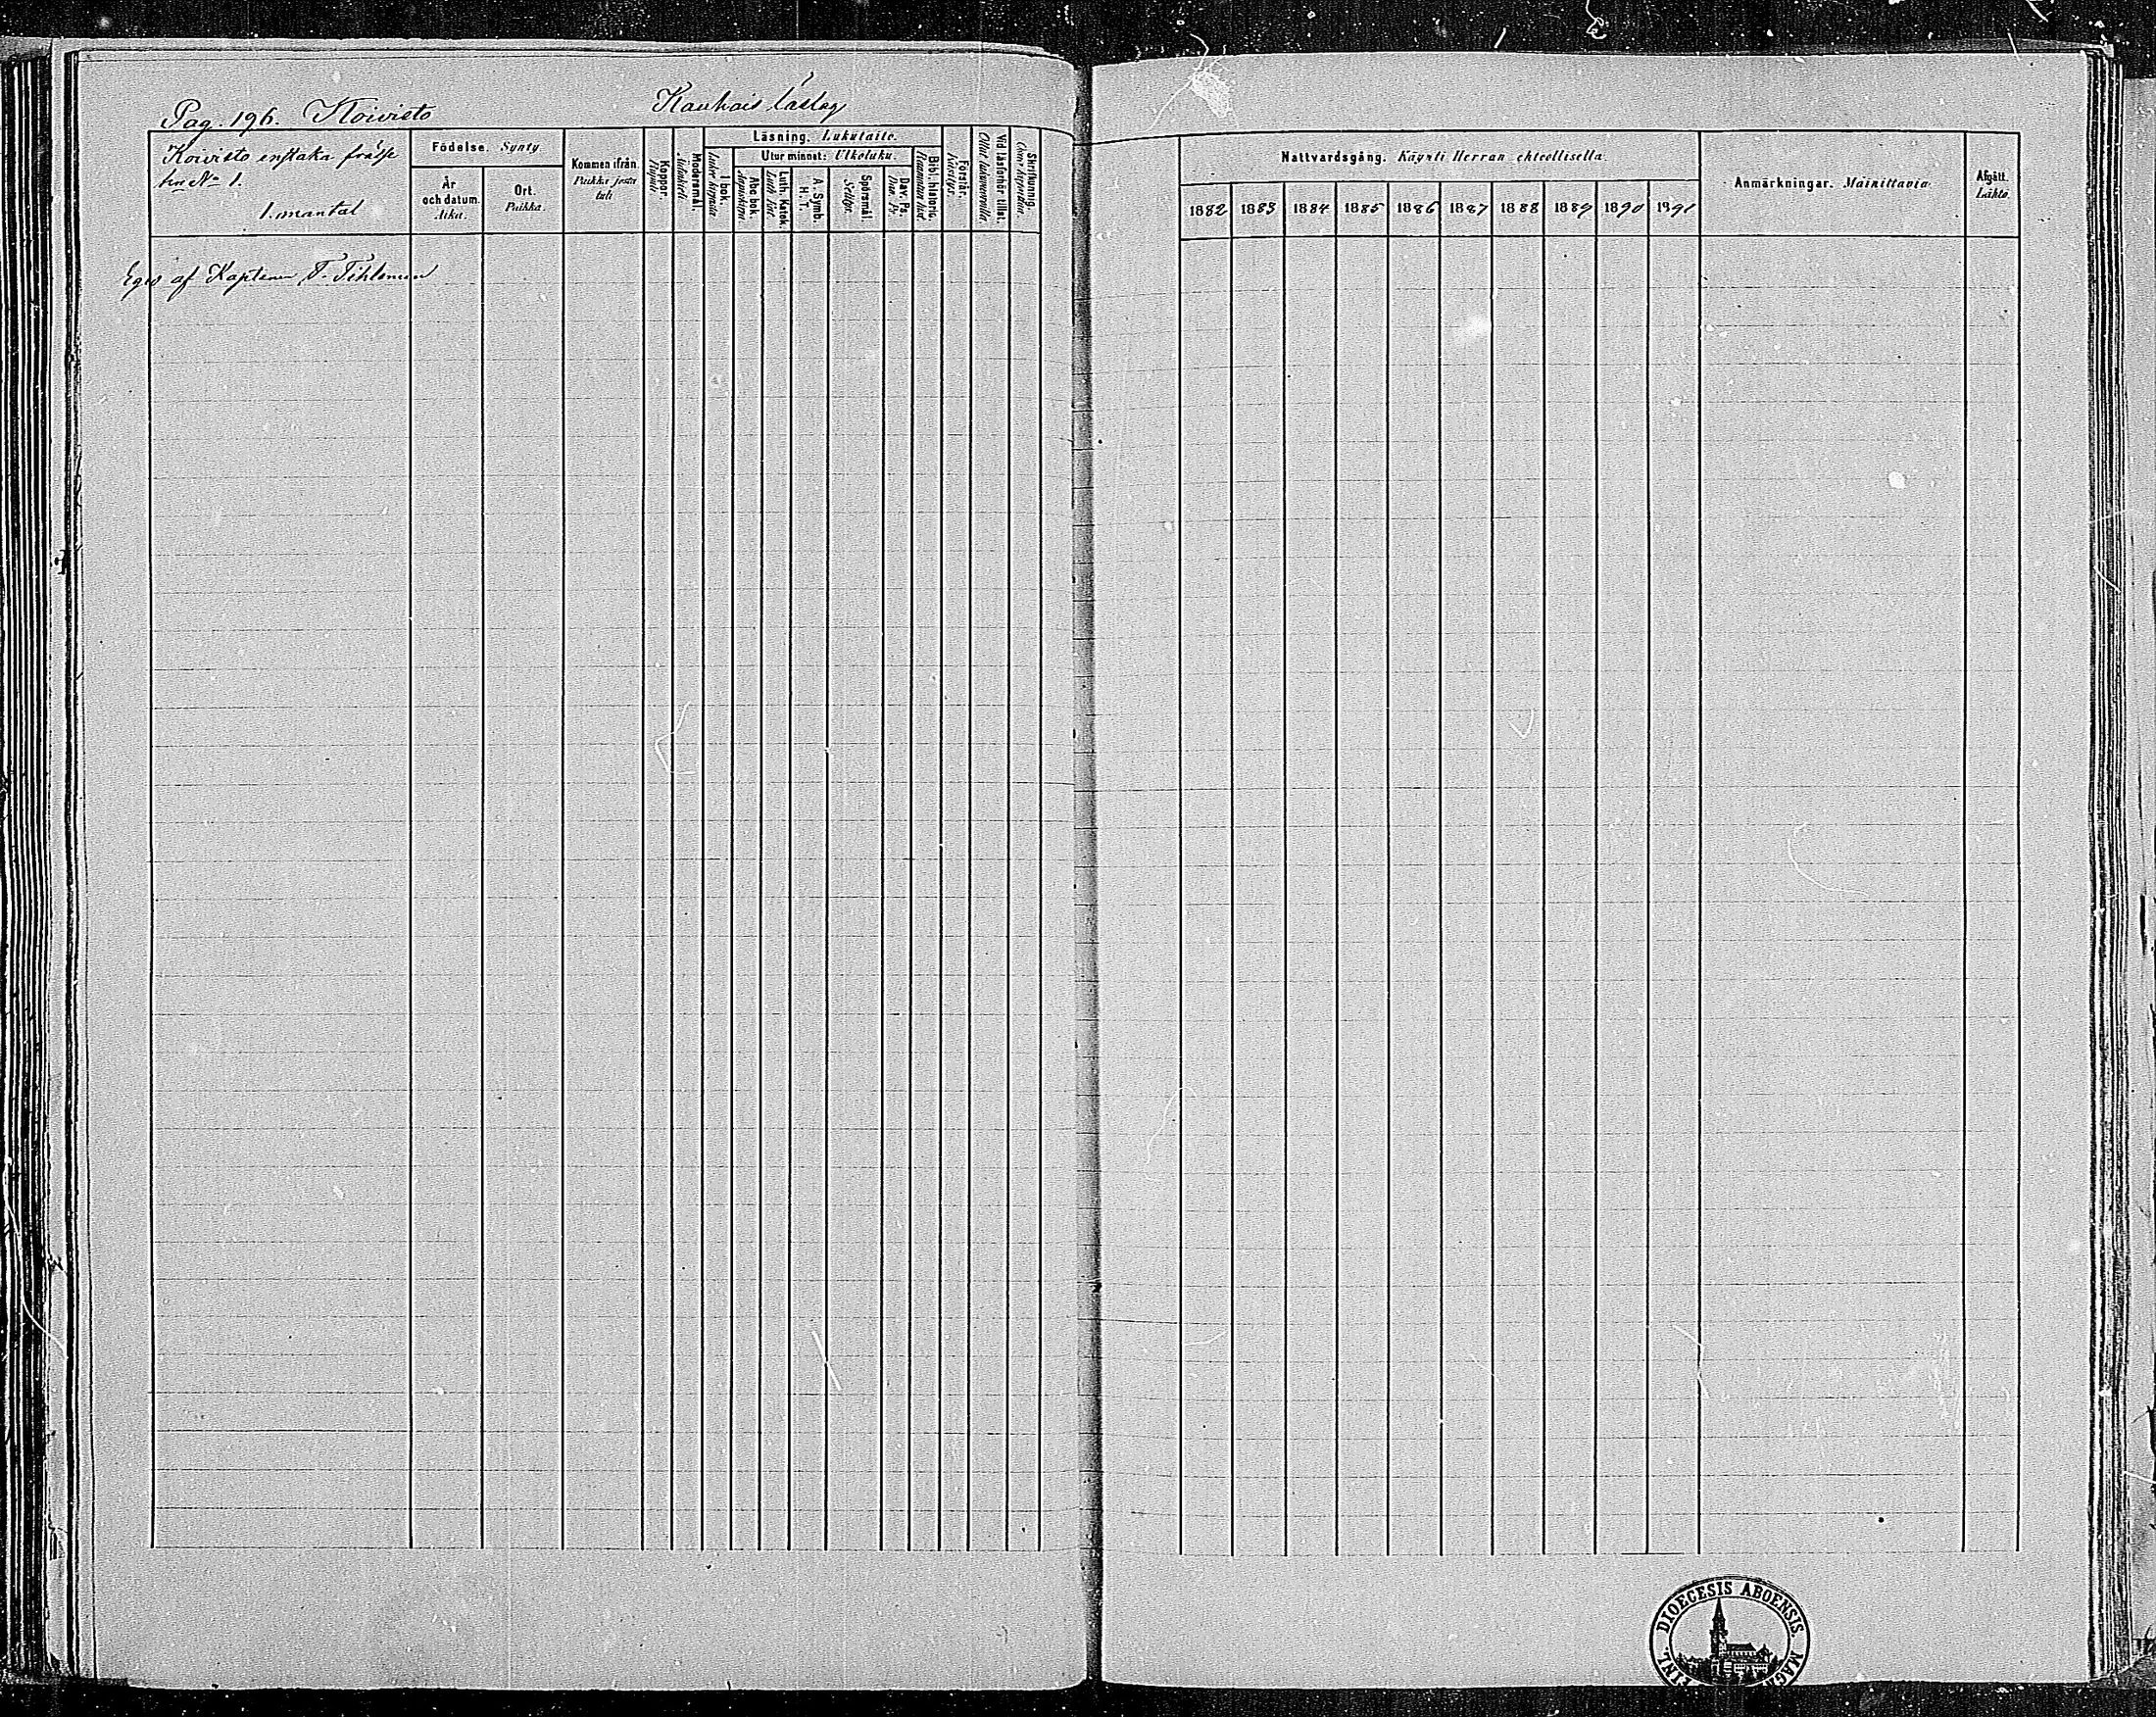 Pag. 196. Koivisto
Kauhais láslag
Koivisto enstaka frälse
hn No 1.
1. mantal
Födelse. Synty.
År
och datum.
Aika.
Ort.
Paikka.
Kommen ifrån.
Paikka josta
tuli
Koppor.
Rupuli
Modersmål.
Äidinkieli
Läsning. Lukutaito.
I bok.
Luku kirjasta
Utur minnet: Ulkoluku.
Abc bok.
Aapiskirja
Luth. Katek.
Luth. Kat.
A. Symb.
H. T.
Spörsmål.
Selitys.
Dav. Ps.
Dav. Ps.
Bibl. historie.
Raamatun hist.
Förstår.
Käsitys.
Vid läsförhör tillst.
Ollut lukuseuroilla.
Skrifkunnig.
Osaa kirjoittaa.
Eges af Kaptenen F. Tihleman
Nattvardsgång. Käynti Herran ehtoollisella.
1882 1883 1884 1885 1886 1887 1888 1889 1890 1891
Anmärkningar. Mainittavia
Afgått.
Lähtö.
FINL. DIOECESIS ABOENSIS. MAG